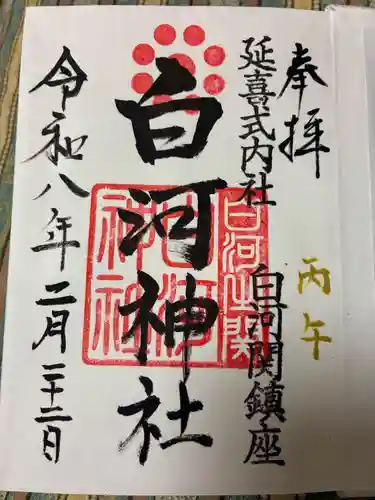 奉拝
丙午
延喜式内社
白河関鎮座
白河神社
白河関
白河神社
令和八年二月二十二日